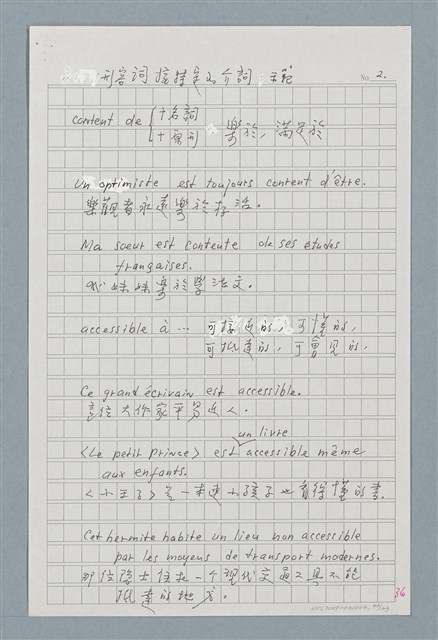 形容詞接特定的介詞,示範
No. 2.
content de { +名詞
+原形
樂於, 滿足於
un optimiste est toujours content d'être.
樂觀者永遠樂於存活。
Ma soeur est contente de ses études
françaises.
妹妹樂於學法文。
accessible à … 可接近的, 可懂的,
可抵達的, 可會見的,
Ce grand écrivain est accessible.
這位大作家平易近人。
un livre
<Le petit prince> est accessible même
aux enfants.
<小王子>是一本連小孩子也看得懂的書.
Cet hermite habite un lieu non accessible
par les moyens de transport modernes.
那位隱士住在一个現代交通工具不能
抵達的地方。
36